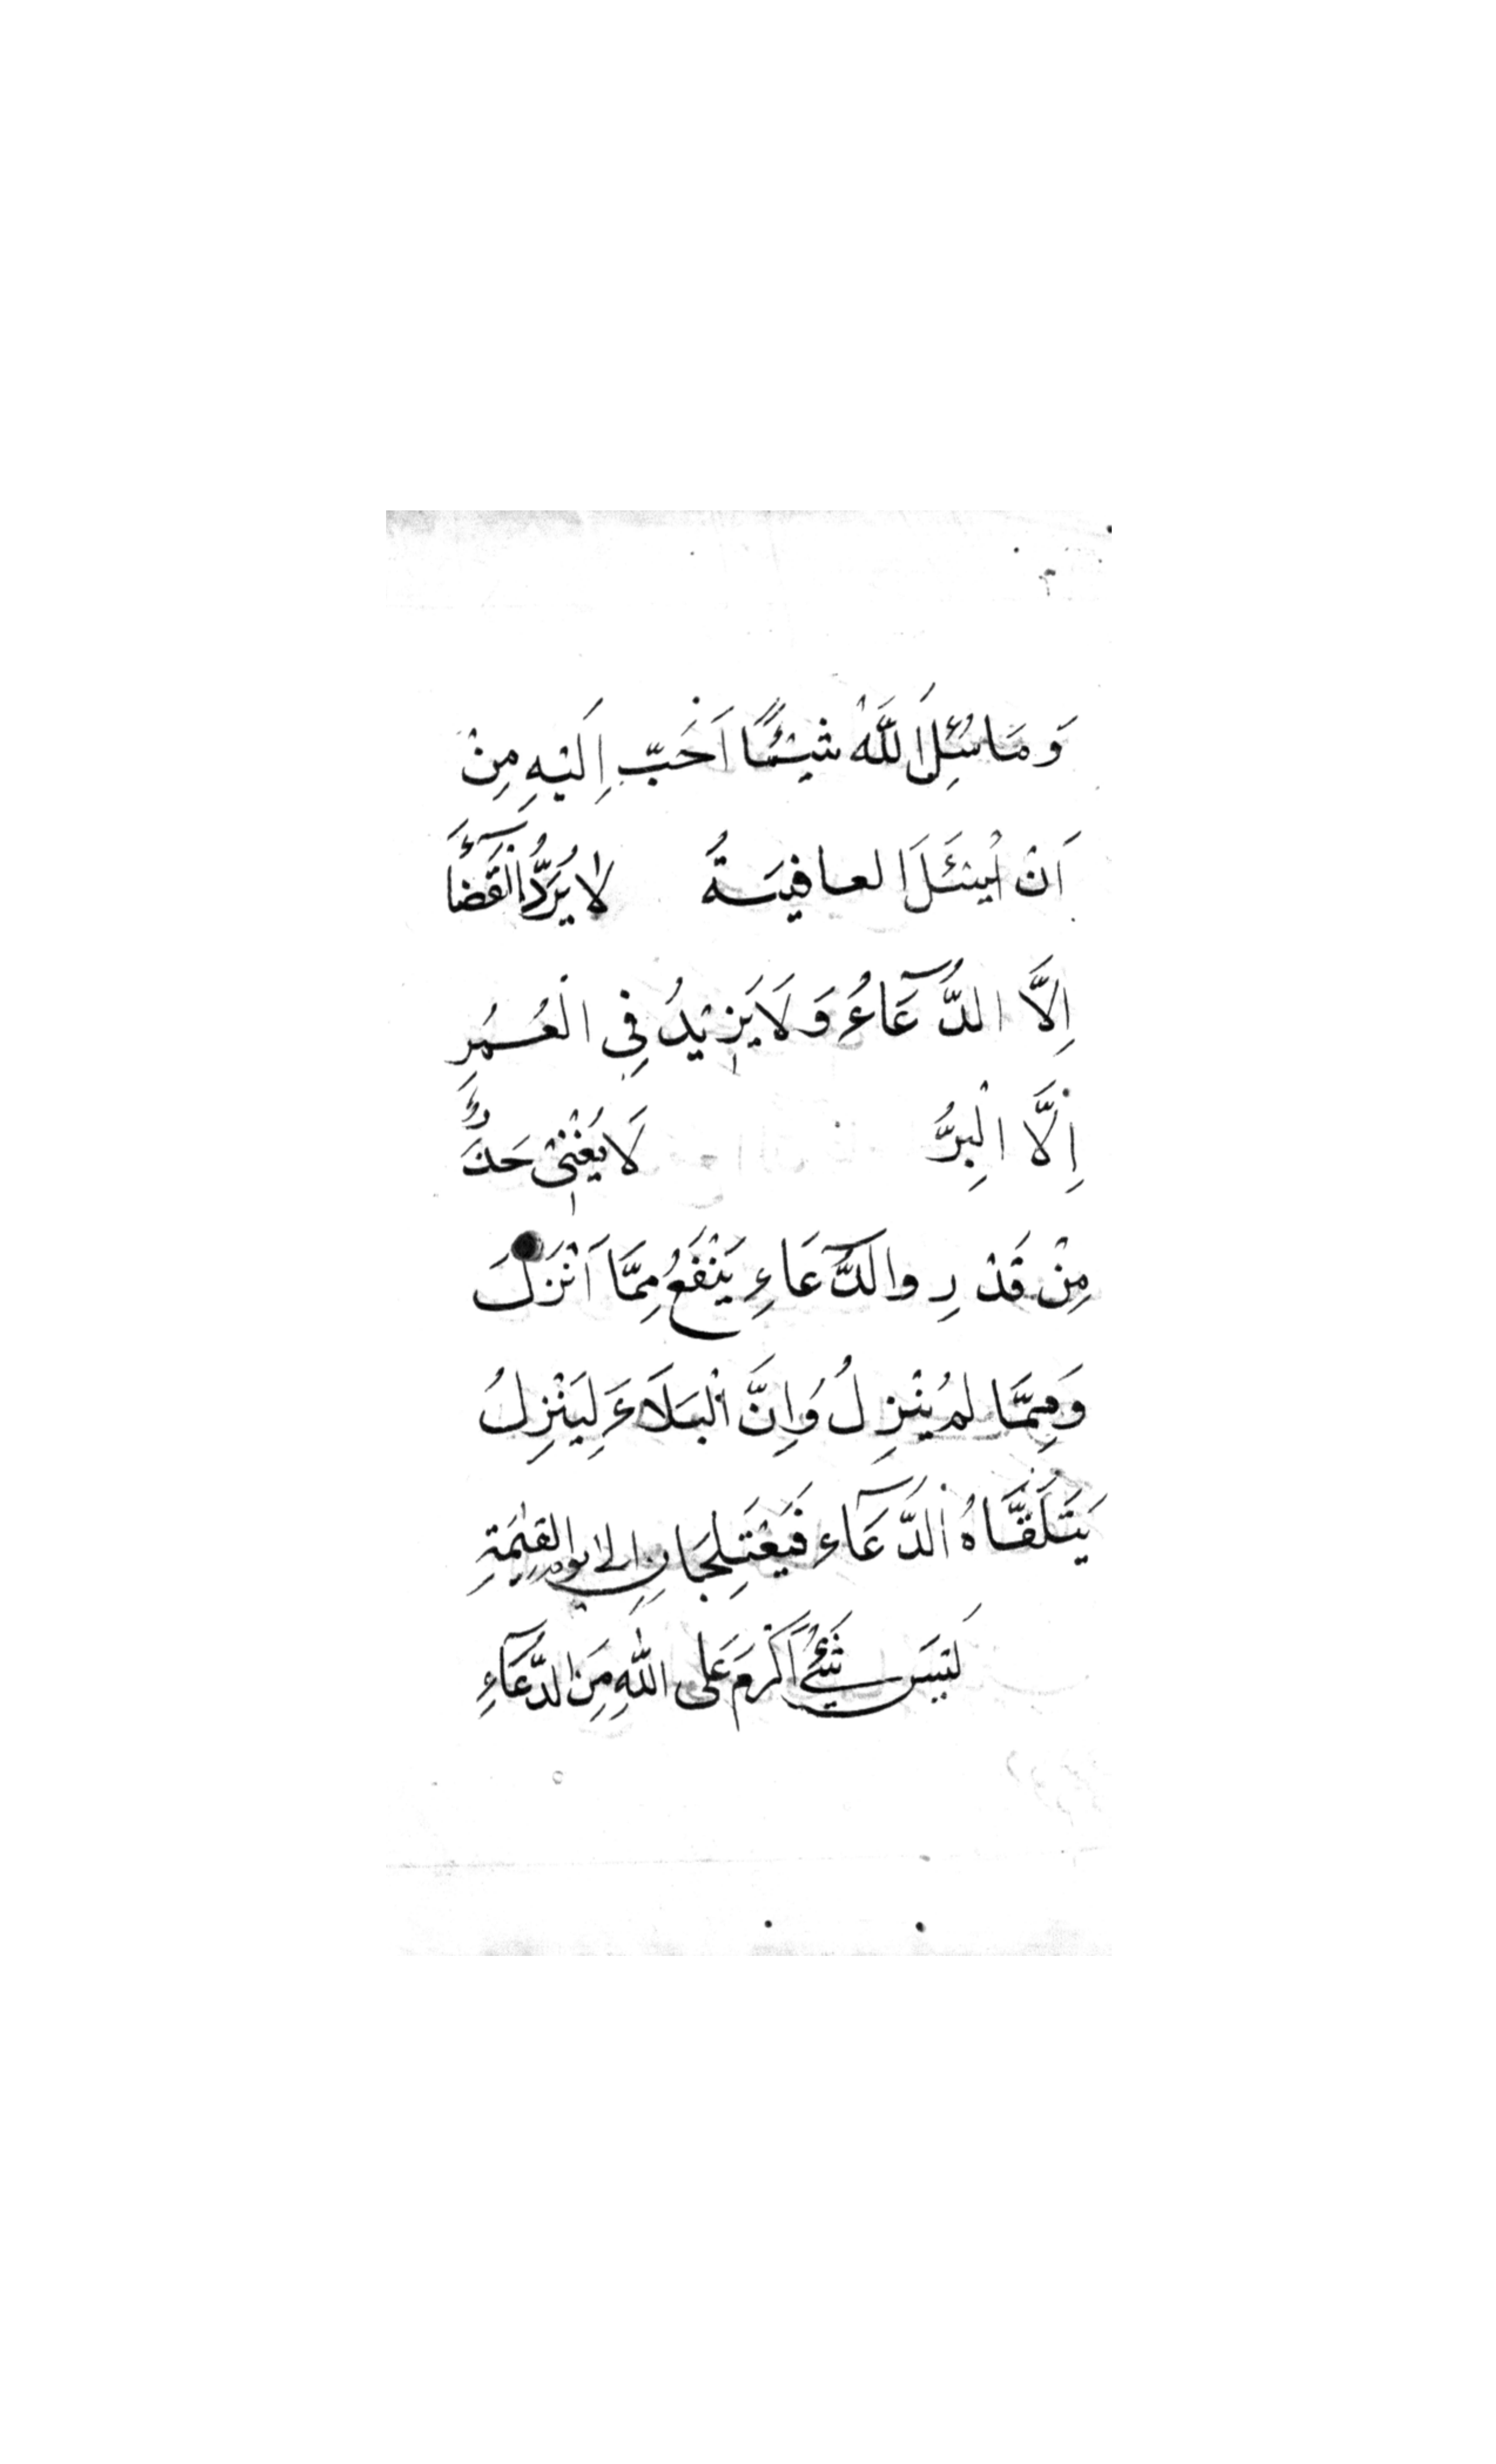 وَ مَا سُئِلَ اللّٰهُ شَيْئًا اَحَبَّ اِلَيْهِ مِنْ
اَنْ يُسْئَلَ العافيَةُ لَا يُرَدُّ الْقَضَآءُ
اِلَّا الدُّعَآءُ وَ لَا يَزِيْدُ فِى الْعُمُرِ
اِلَّا الْبِرُّ لَا يُغْنِىْ حَذَرٌ
مِنْ قَدْرٍ والدُّعَآءِ يَنْفَعُ مِمَّا اَنْزَلَ
وَمِمَّا لم يُنْزِلُ وَاِنَّ الْبَلَاءَ لِيَنْزِلُ
يَتَلَقَّاهُ الدُّعَآءِ فَيَعْتَلِجَانِ الى يوم القيٰمَةِ
لَيسَ شَيْئٌ اَكْرَمَ عَلى اللّٰهِ مِنَ الدُّعَآءِ